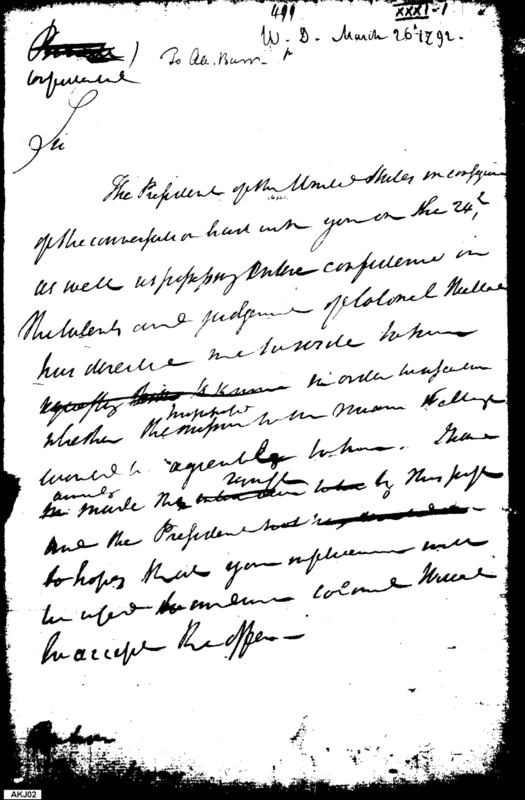 499
XXXI-1
W. D. March 26th 1792.
To Aa. Burr.
Confidential
Sir
The President of the United States in consequence
of the conversation had with you on the 24th,
as well as possessing entire confidence in
the talents and judgment of Colonel
has directed me to write to him
in order to ascertain
whether the mission to the Miami Village
would be agreeable to him. I have
made the by this post
and the President
to hopes that your influence will
be used to induce Colonel
to accept the offer
AKJ02